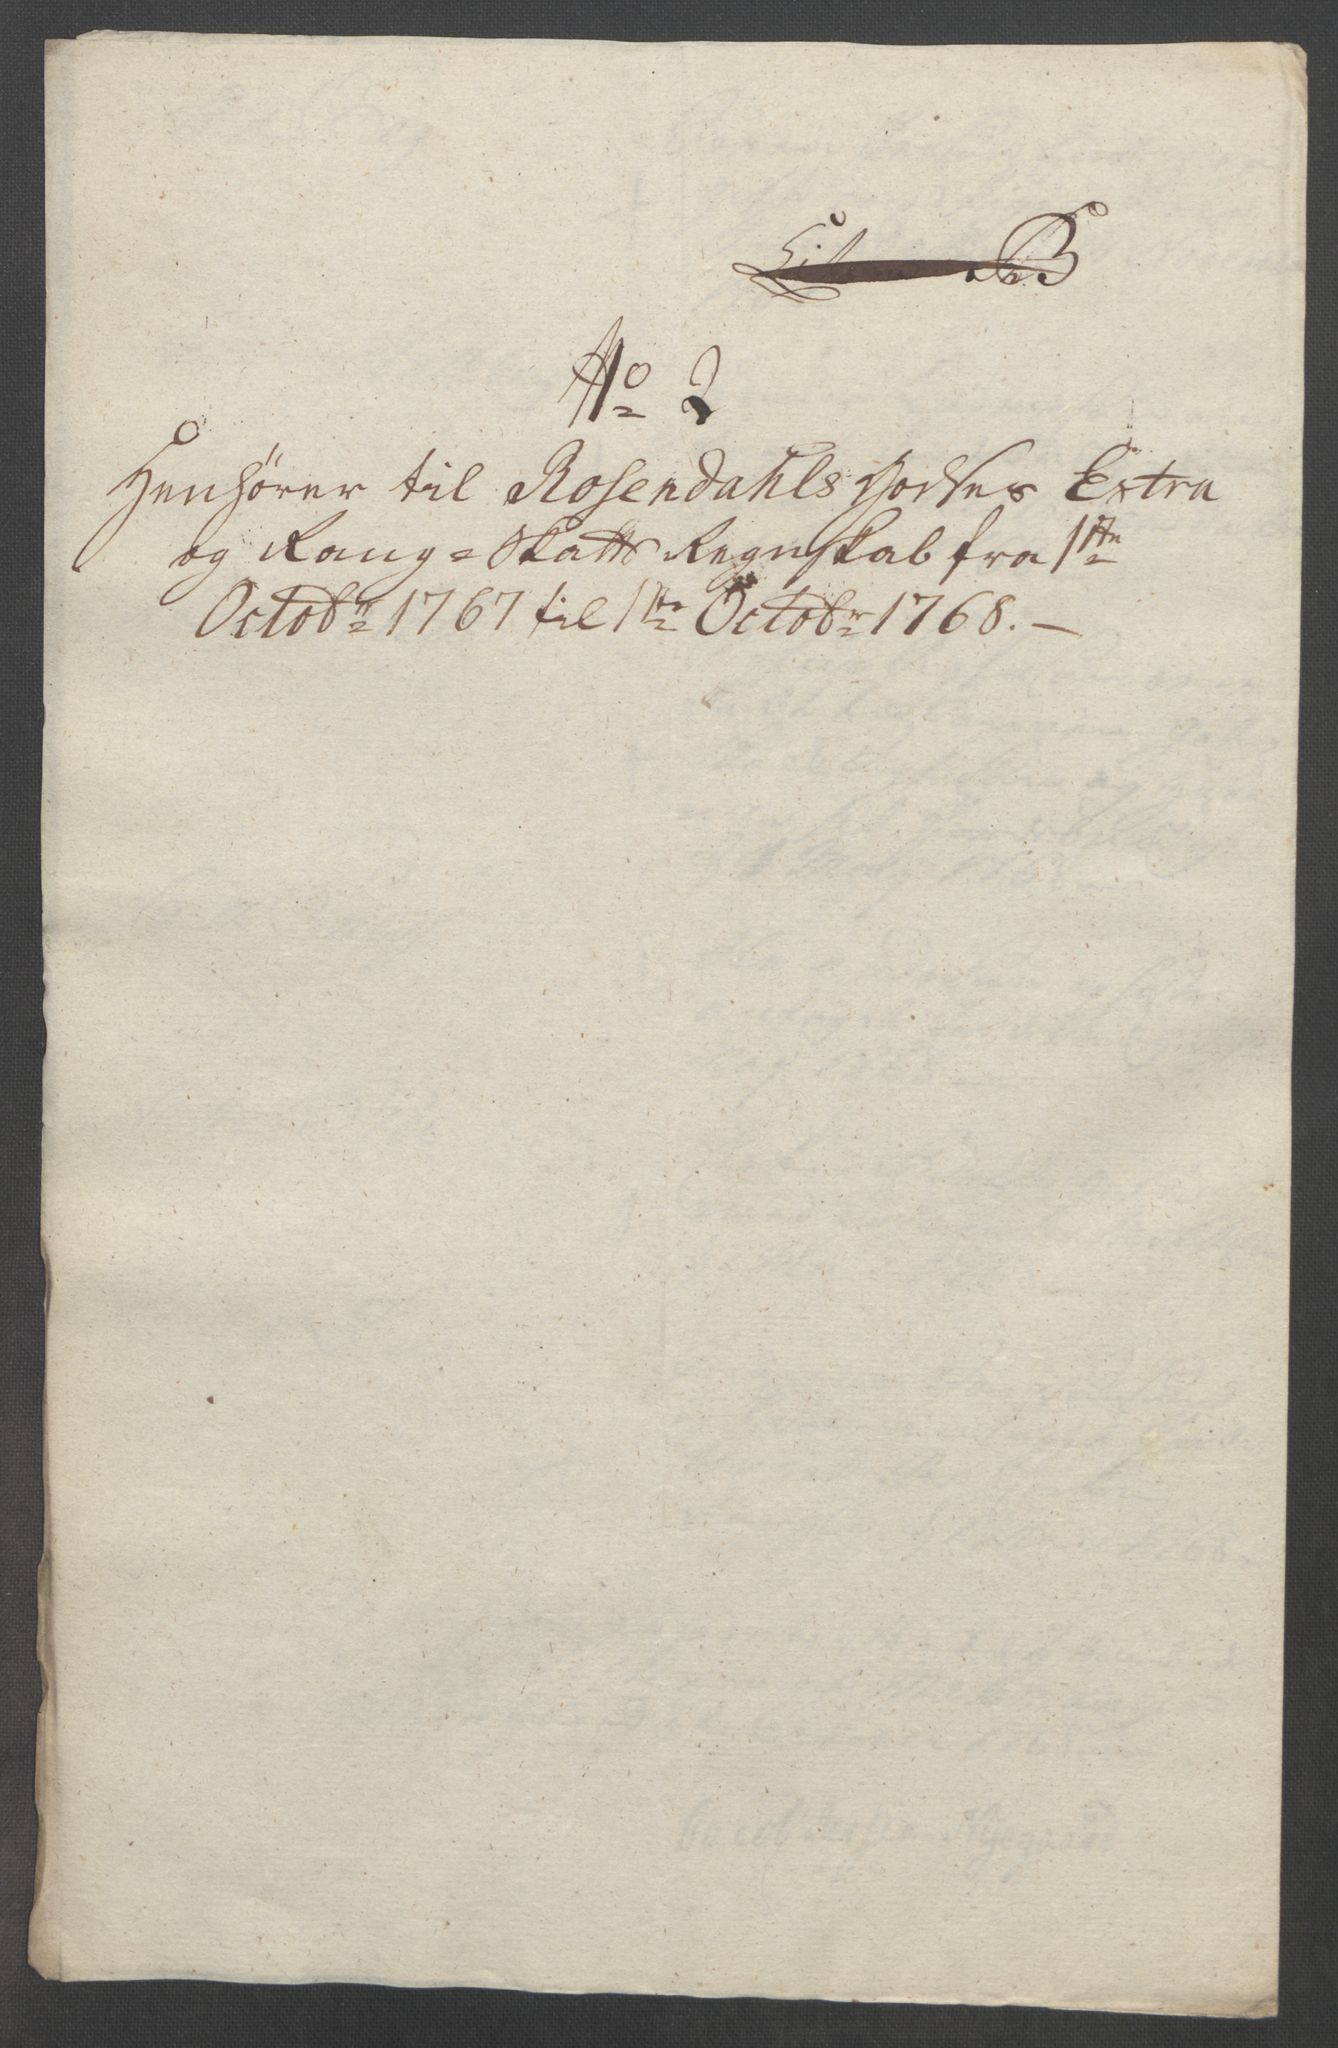 Lit B
No 2
Henhörer til Rosendahls Godses Extra
og Rang= Skatts Regnskab fra 1ste
Octobr 1767 til 1ste Octobr 1768. —